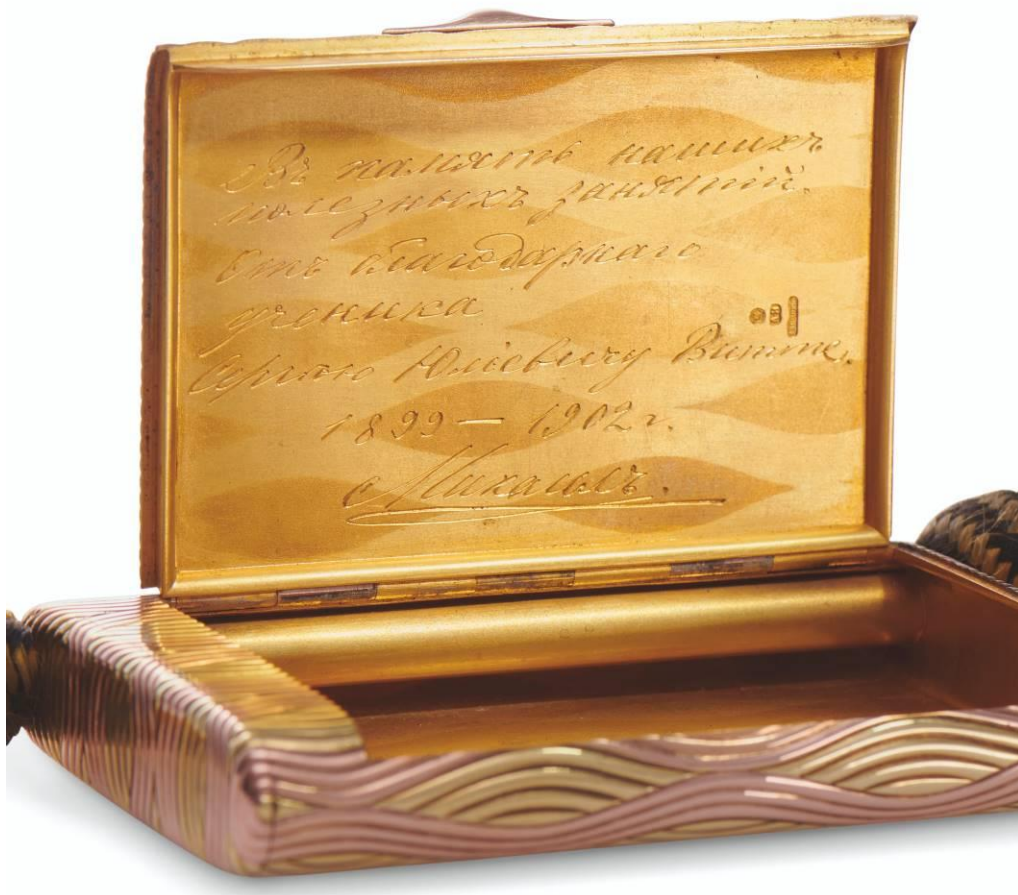 Въ память нашихъ
полезныхъ занятій.
Отъ благодарнаго
ученика
Сергѣю Юліевичу Витте.
1899 — 1902 г.
Михаилъ.